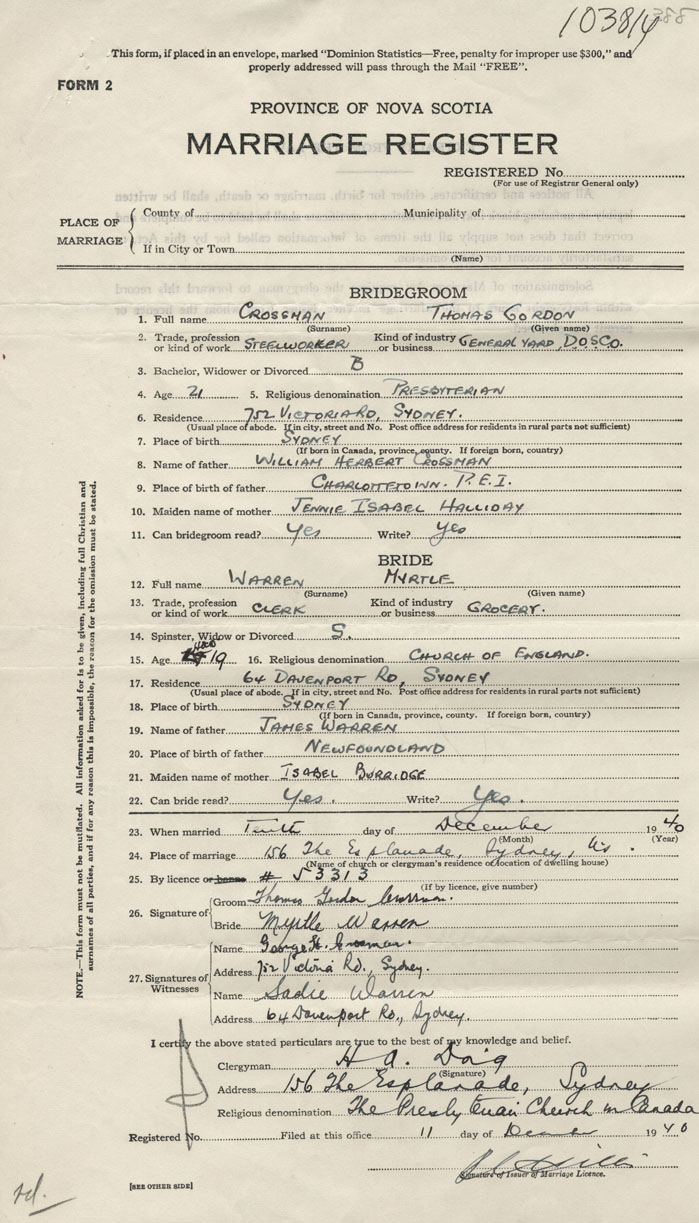 103814
This form, if placed in an envelope, marked "Dominion Statistics—Free, penalty for improper use $300," and
properly addressed will pass through the Mail "FREE".
FORM 2
PROVINCE OF NOVA SCOTIA
MARRIAGE REGISTER
REGISTERED No.
(For use of Registrar General only)
PLACE OF MARRIAGE
County of Municipality of
If in City or Town
(Name)
BRIDEGROOM
1. Full name CROSSMAN THOMAS GORDON
(Surname) (Given name)
2. Trade, profession or kind of work STEELWORKER Kind of industry or business GENERAL YARD, DOSCO.
3. Bachelor, Widower or Divorced B
4. Age 21 5. Religious denomination PRESBYTERIAN
6. Residence 752 VICTORIA RD, SYDNEY.
(Usual place of abode. If in city, street and No. Post office address for residents in rural parts not sufficient)
7. Place of birth SYDNEY
(If born in Canada, province, county. If foreign born, country)
8. Name of father WILLIAM HERBERT CROSSMAN
9. Place of birth of father CHARLOTTETOWN. P.E.I.
10. Maiden name of mother JENNIE ISABEL HALLIDAY
11. Can bridegroom read? Yes Write? Yes
BRIDE
12. Full name WARREN MYRTLE
(Surname) (Given name)
13. Trade, profession or kind of work CLERK Kind of industry or business GROCERY.
14. Spinster, Widow or Divorced S.
15. Age 19 16. Religious denomination CHURCH OF ENGLAND.
17. Residence 64 DAVENPORT RD, SYDNEY
(Usual place of abode. If in city, street and No. Post office address for residents in rural parts not sufficient)
18. Place of birth SYDNEY
(If born in Canada, province, county. If foreign born, country)
19. Name of father JAMES WARREN
20. Place of birth of father NEWFOUNDLAND
21. Maiden name of mother ISABEL BURRIDGE
22. Can bride read? Yes. Write? Yes.
23. When married Tenth day of December 1940
(Month) (Year)
24. Place of marriage 156 The Esplanade, Sydney, NS.
(Name of church or clergyman's residence or location of dwelling house)
25. By licence or banns # 53313
(If by licence, give number)
26. Signature of
Groom Thomas Gordon Crossman.
Bride Myrtle Warren
27. Signatures of Witnesses
Name George H. Crossman.
Address 752 Victoria Rd., Sydney.
Name Sadie Warren
Address 64 Davenport Rd., Sydney.
I certify the above stated particulars are true to the best of my knowledge and belief.
Clergyman H A. Doig
(Signature)
Address 156 The Esplanade, Sydney
Religious denomination The Presbyterian Church in Canada
Registered No. Filed at this office 11 day of 1940
Signature of Issuer of Marriage Licence.
[SEE OTHER SIDE]
NOTE.—This form must not be mutilated. All information asked for is to be given, including full Christian and
surnames of all parties, and if for any reason this is impossible, the reason for the omission must be stated.